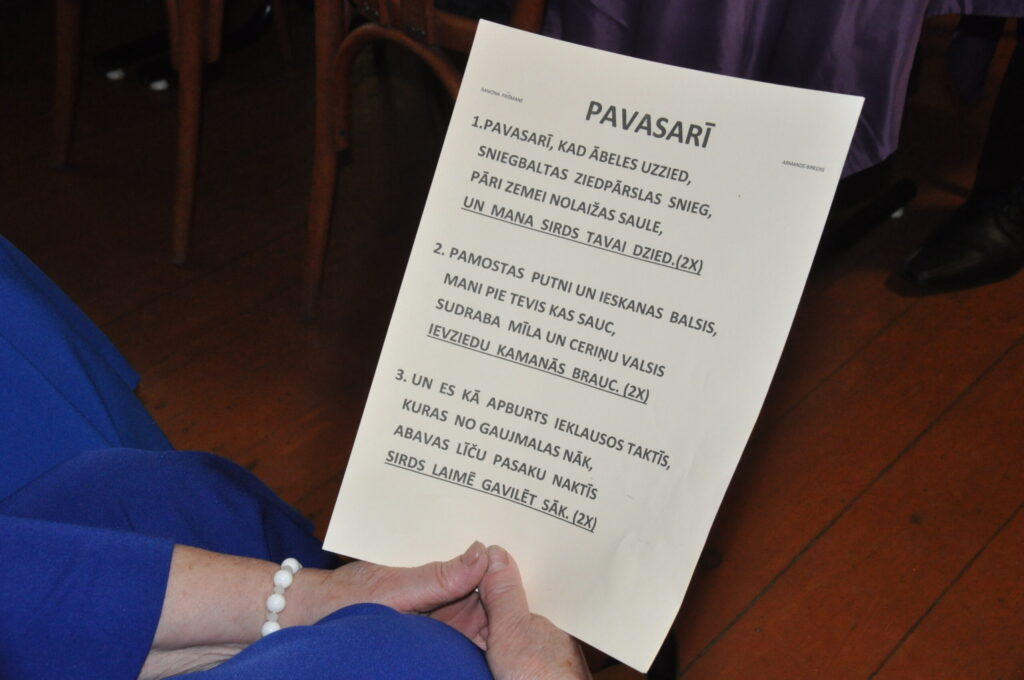 RAMONA PRĪSMANE
PAVASARĪ
ARMANDS BIRĶENS
1.PAVASARĪ, KAD ĀBELES UZZIED,
SNIEGBALTAS ZIEDPĀRSLAS SNIEG,
PĀRI ZEMEI NOLAIŽAS SAULE,
UN MANA SIRDS TAVAI DZIED.(2X)
2. PAMOSTAS PUTNI UN IESKANAS BALSIS,
MANI PIE TEVIS KAS SAUC,
SUDRABA MĪLA UN CERIŅU VALSIS
IEVZIEDU KAMANĀS BRAUC. (2X)
3. UN ES KĀ APBURTS IEKLAUSOS TAKTĪS,
KURAS NO GAUJMALAS NĀK,
ABAVAS LĪČU PASAKU NAKTĪS
SIRDS LAIMĒ GAVILĒT SĀK. (2X)